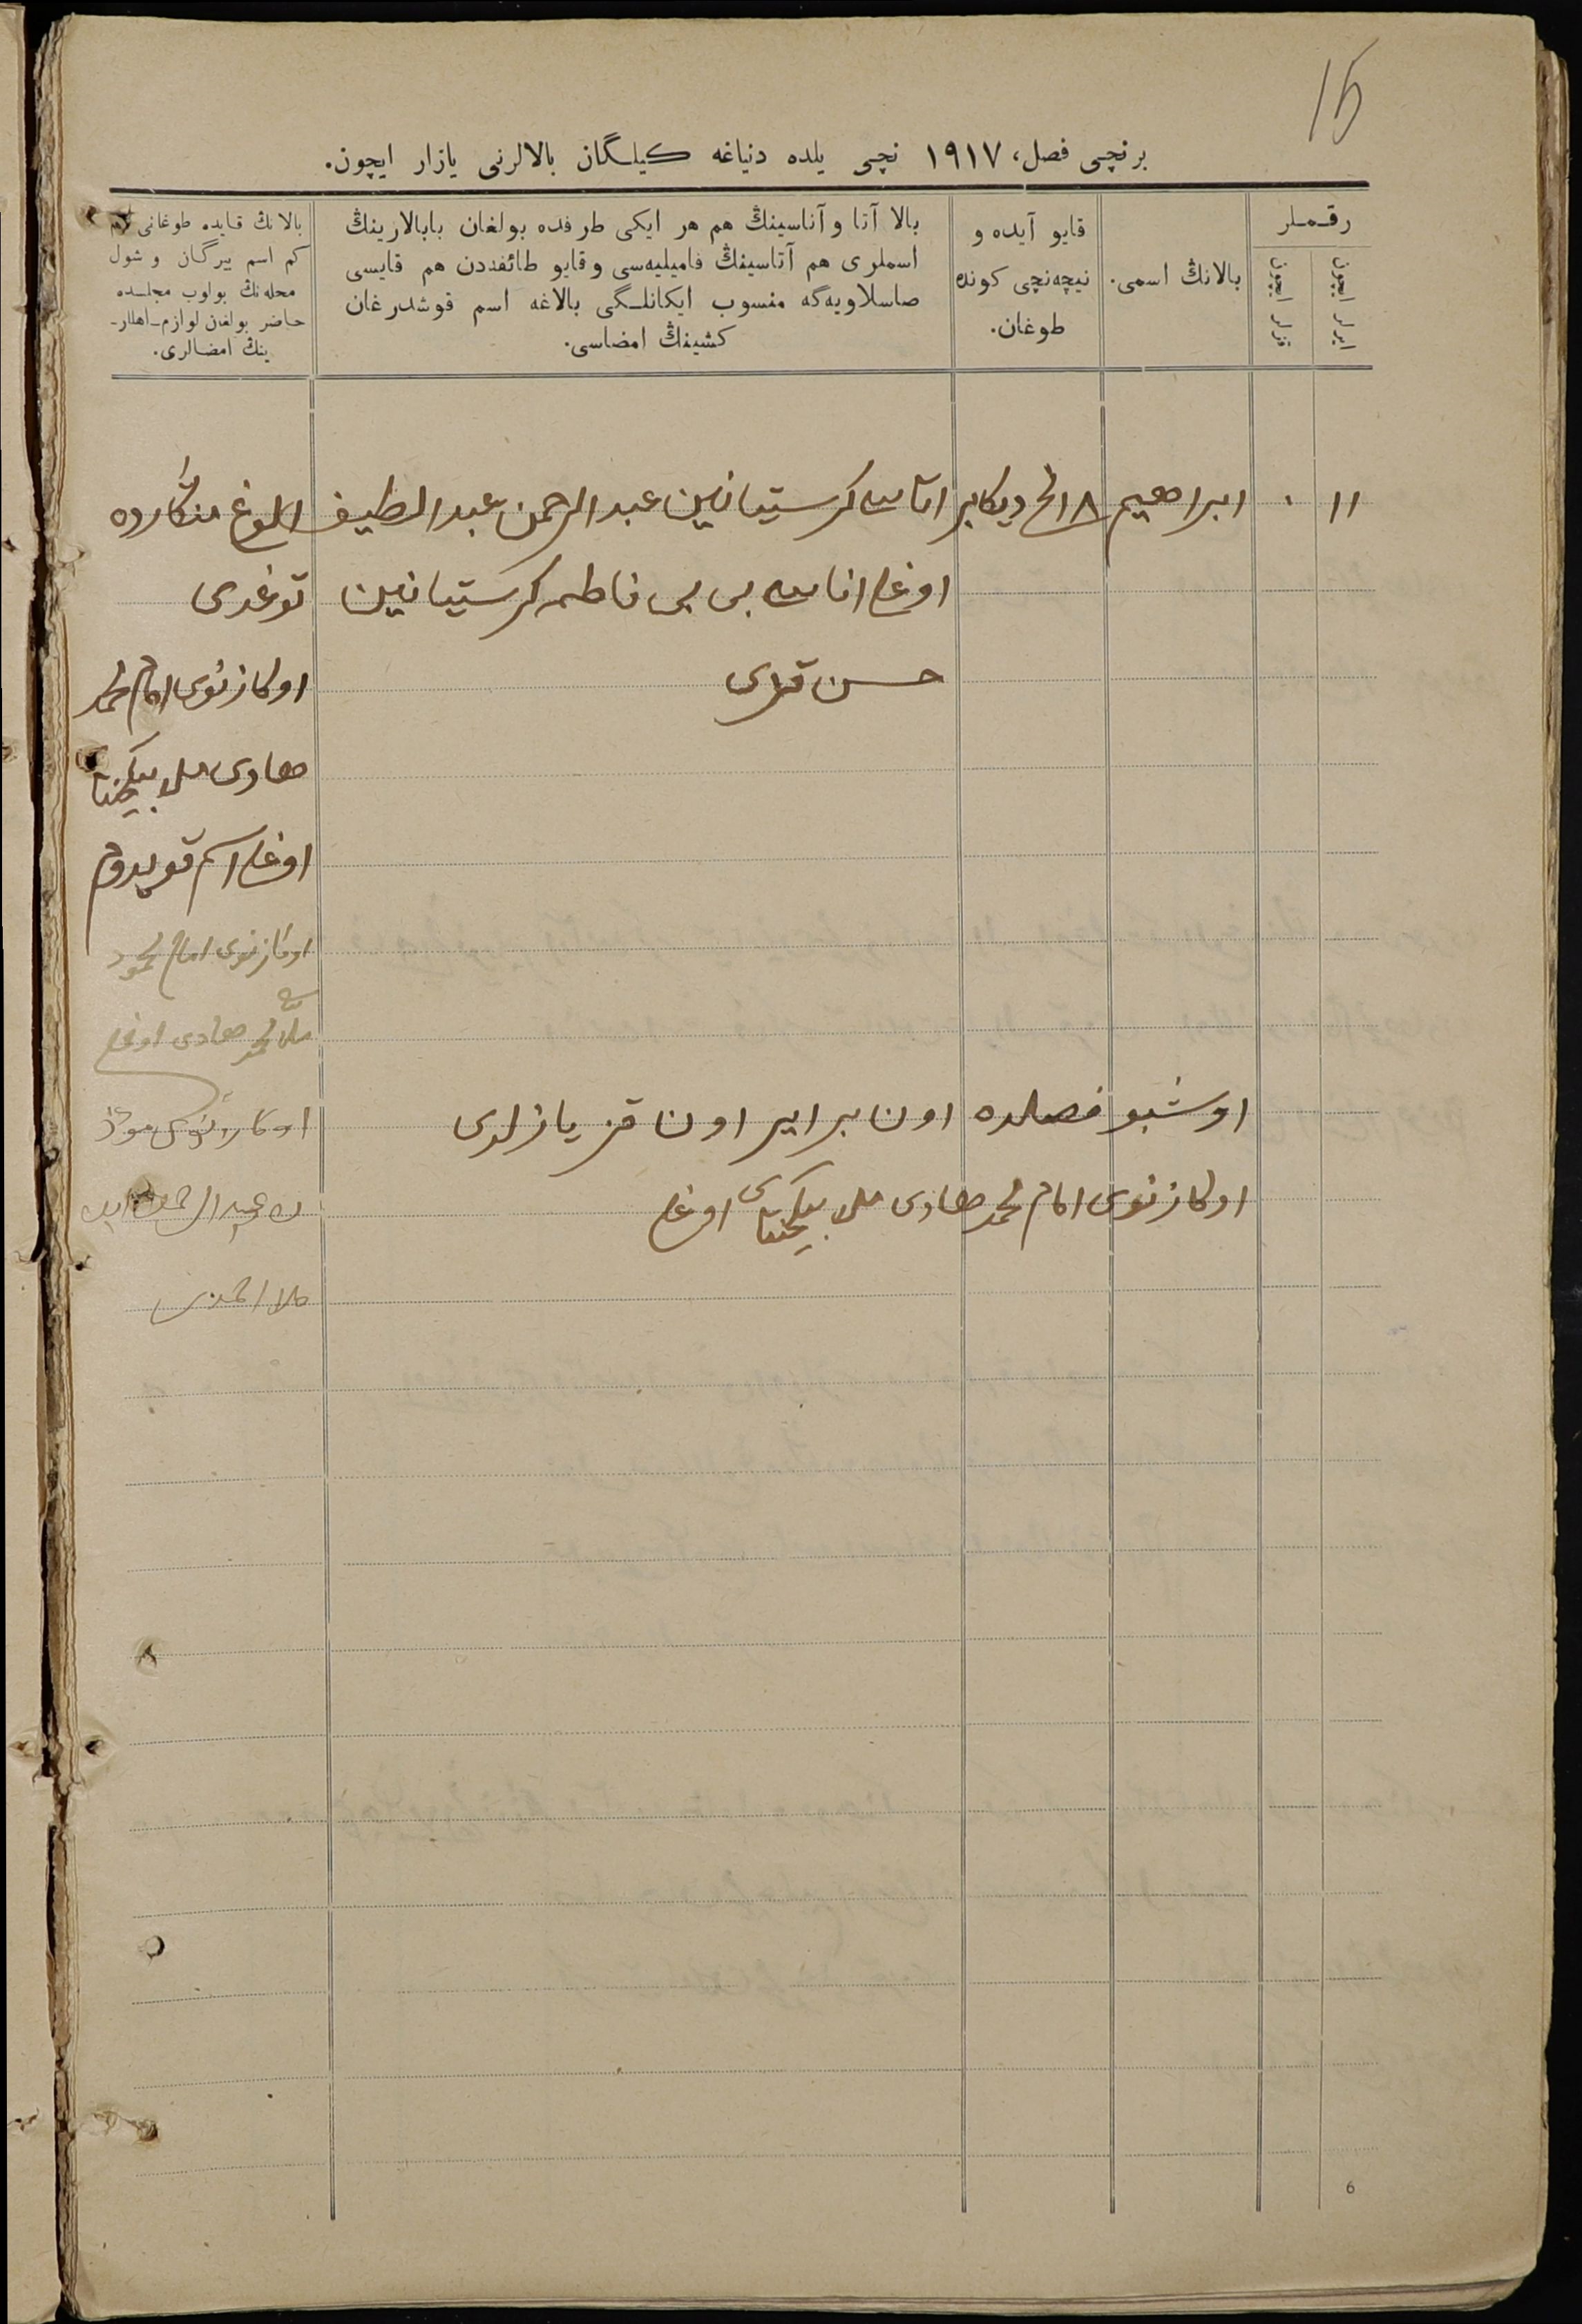 15
برنچی فصل، ١٩١٧ نچی یلده دنیاغه کیلگان بالالرنی یازار ایچون.
رقملر
ایرلر ایچون
قزلر ایچون
بالانڭ اسمی.
قایو آیده و
نیچه‌نچی کونده
طوغان.
بالا آتا و آناسینڭ هم هر ایکی طرفده بولغان بابالارینڭ
اسملری هم آتاسینڭ فامیلیه‌سی و قایو طائفه‌دن هم قایسی
صاسلاویه‌گه منسوب ایکانلگی بالاغه اسم قوشدرغان
کشینڭ امضاسی.
بالانڭ قایده طوغانی هم
کم اسم بیرگان و شول
محله‌نڭ بولوب مجلسده
حاضر بولغان لوازم-اهللر-
ینڭ امضالری.
١١ ٠ ابراهیم ١٨ نچی دیکابر اتاسی کرستیانین عبدالرحمن عبداللطیف الوغ منگارده
اوغلی اناسی بی بی فاطمه کرستیانین توغدی
حسن قزی اوکازنوی امام محمد
هادی ملا بیکچنتای
اوغلی اسم قویدوم
اوکازنوی امام محمود
ملا محمد هادی اوغلی
اوشبو فصلده اون بر ایر اون قز یازلدی
اوکازنوی
اوکازنوی امام محمد هادی ملا بیکچنتای اوغلی
عبدالرحمن
ملا احمدی
6